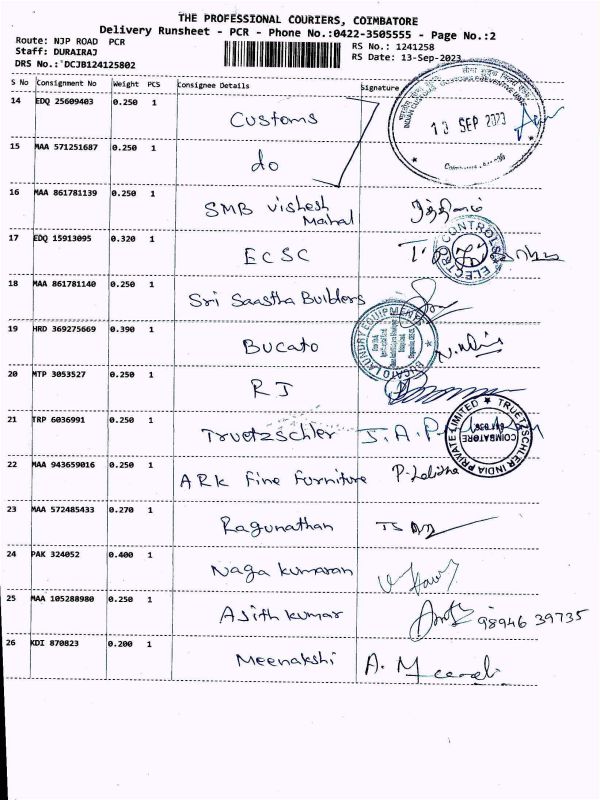 THE PROFESSIONAL COURIERS, COIMBATORE
Delivery Runsheet - PCR - Phone No.:0422-3505555 - Page No.:2
Route: NJP ROAD PCR
RS No.: 1241258
Staff: DURAIRAJ
RS Date: 13-Sep-2023
DRS No.:`DCJB124125802
S No Consignment No Weight PCS Consignee Details Signature
14 EDQ 25609403 0.250 1 Customs
13 SEP 2023
15 MAA 571251687 0.250 1 do
16 MAA 861781139 0.250 1 SMB Vishesh Mahal
17 EDQ 15913095 0.320 1 ECSC
ELECTRO CONTROLS
18 MAA 861781140 0.250 1 Sri Saastha Builders
19 HRD 369275669 0.390 1 Bucato
BUCATO LAUNDRY EQUIPMENT
20 MTP 3053527 0.250 1 RJ
21 TRP 6036991 0.250 1 Truetzschler
TRUETZSCHLER INDIA PRIVATE LIMITED
COIMBATORE
22 MAA 943659016 0.250 1 ARK Fine Furniture P. Lalitha
23 MAA 572485433 0.270 1 Ragunathan
24 PAK 324052 0.400 1 Naga kumaran
25 MAA 105288980 0.250 1 Ajith kumar 98946 39735
26 KDI 870823 0.200 1 Meenakshi